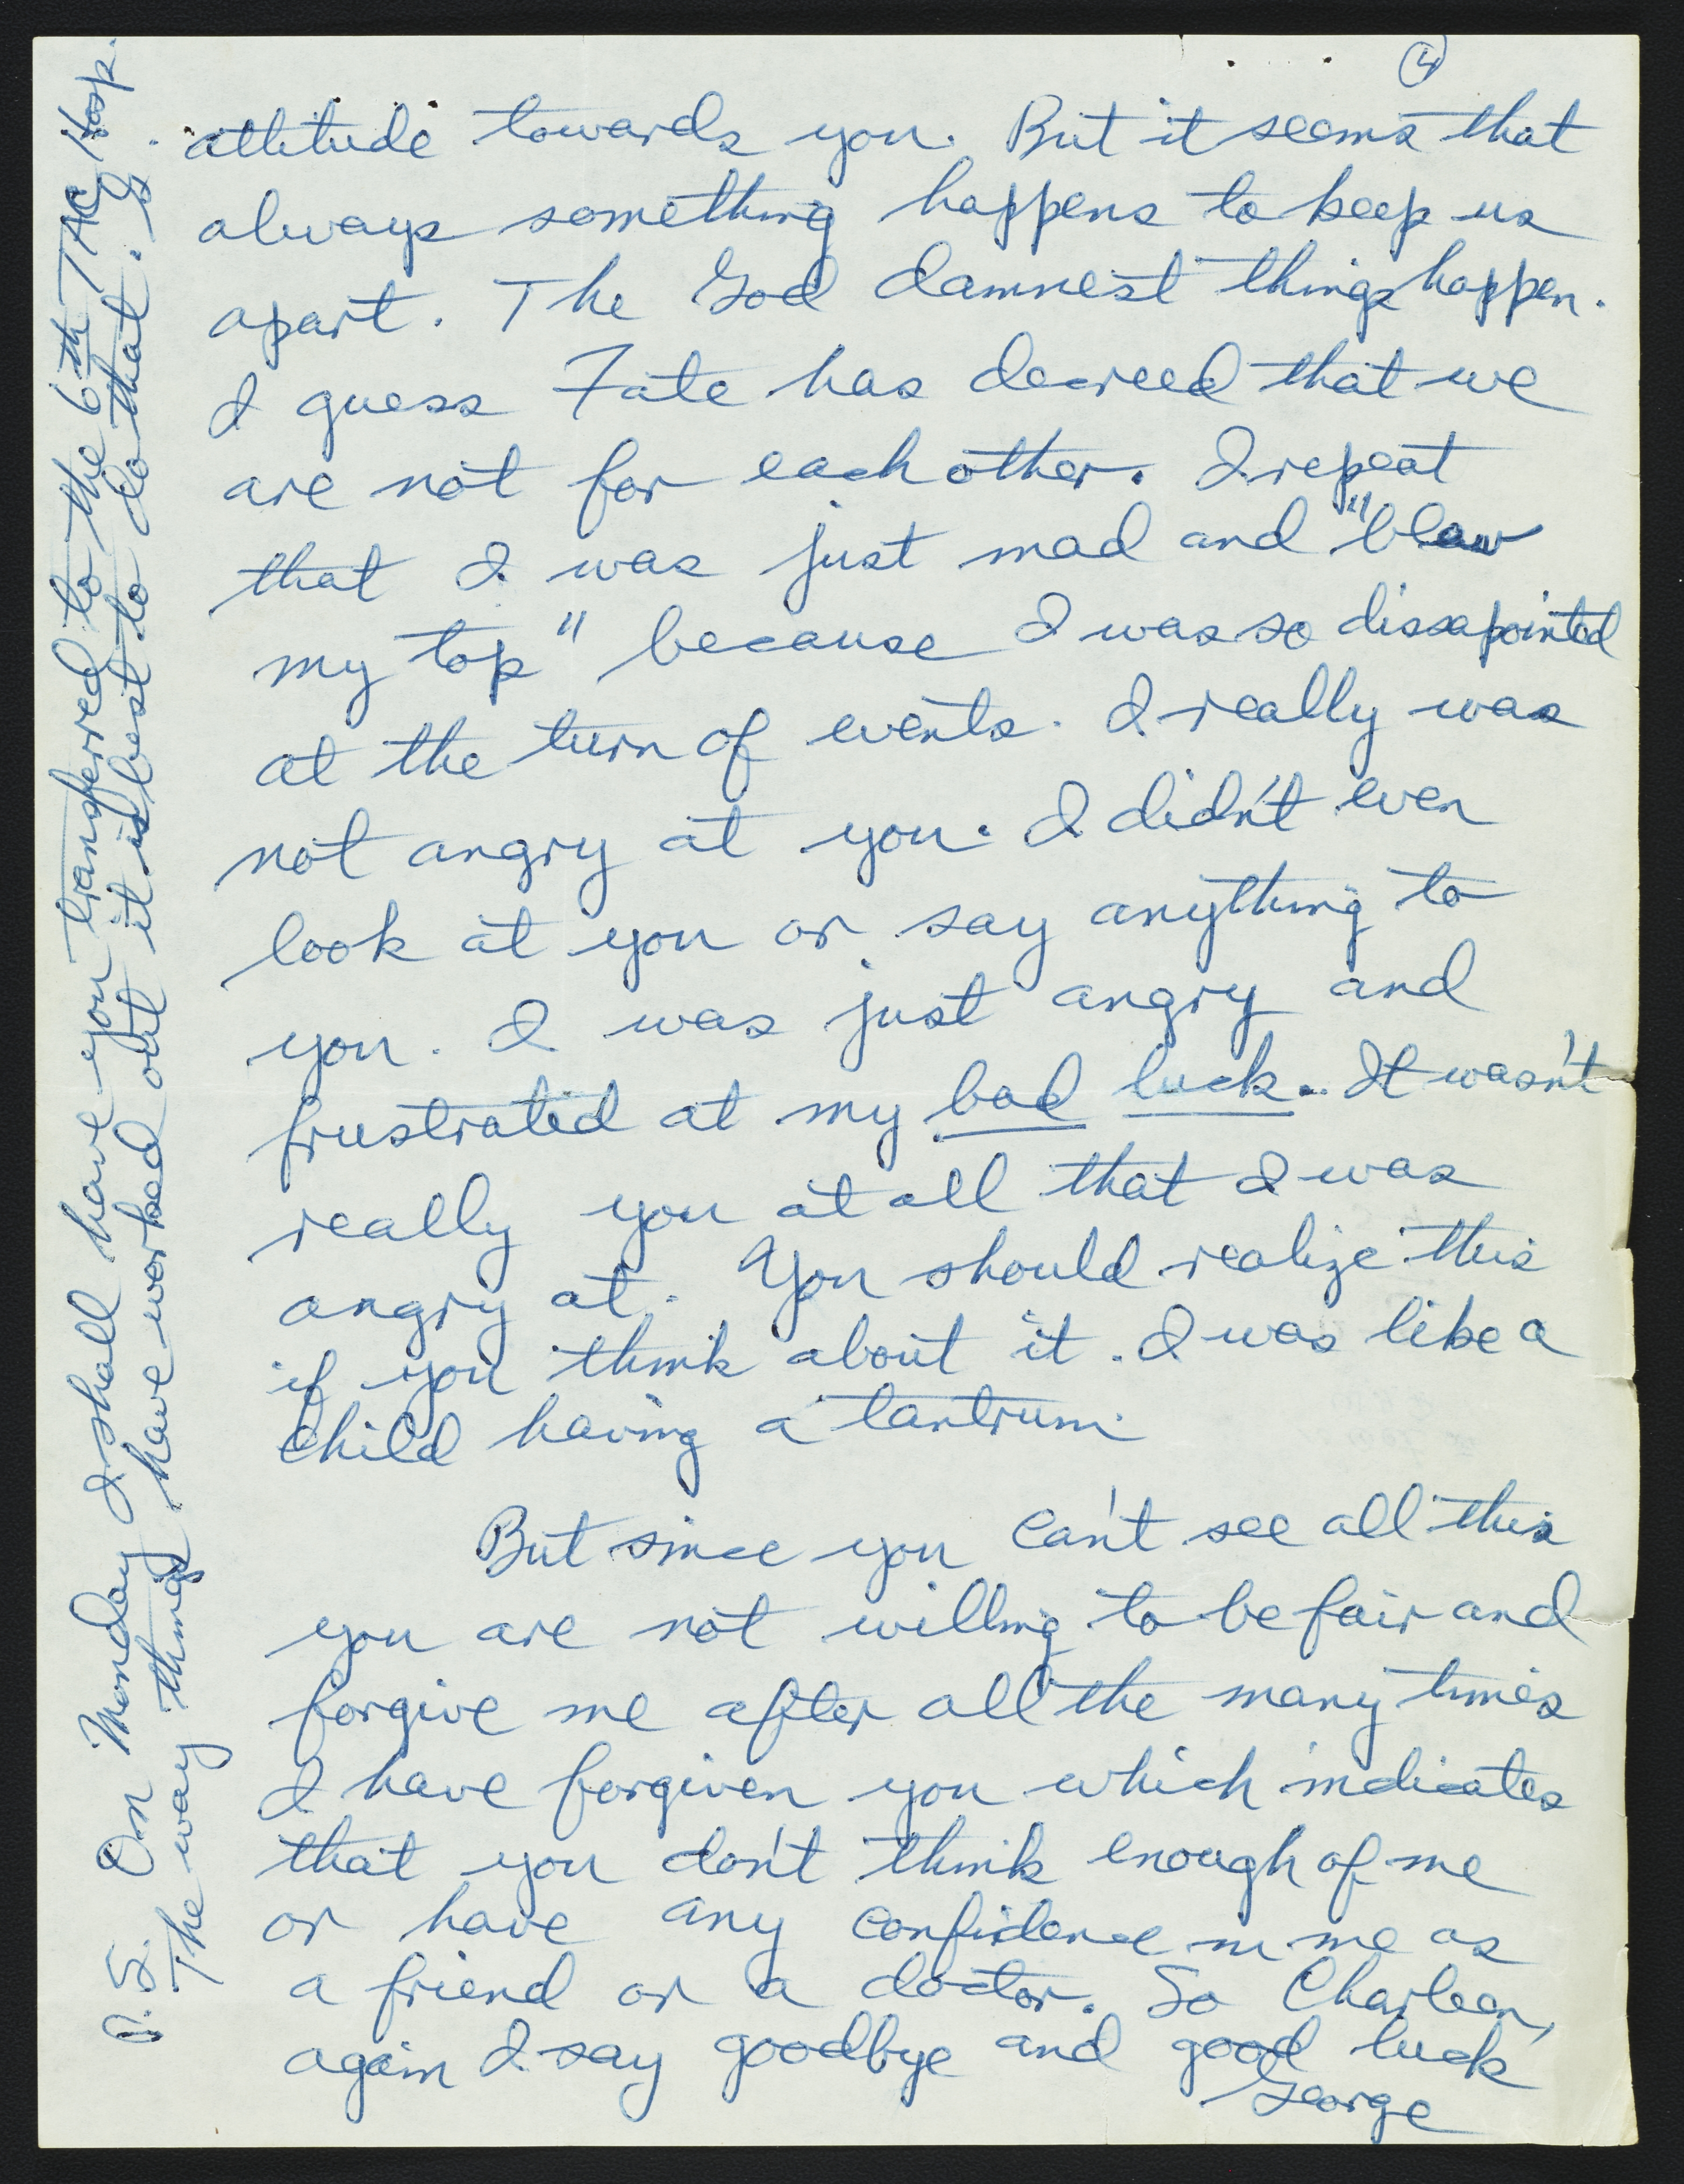 4
attitude towards you. But it seems that
always something happens to keep us
apart. The God damnest things happen.
I guess Fate has decreed that we
are not for each other. I repeat
that I was just mad and "blew
my top" because I was so dissapointed
at the turn of events. I really was
not angry at you. I didn't even
look at you or say anything to
you. I was just angry and
frustrated at my bad luck. It wasn't
really you at all that I was
angry at. You should realize this
if you think about it. I was like a
child having a tantrum.
But since you can't see all this
you are not willing to be fair and
forgive me after all the many times
I have forgiven you which indicates
that you don't think enough of me
or have any confidence in me as
a friend or a doctor. So Charleen,
again I say goodbye and good luck
George
P.S. On Monday I shall have you transferred to the 6th TAC Hosp.
The way things have worked out it is best to do that. G.